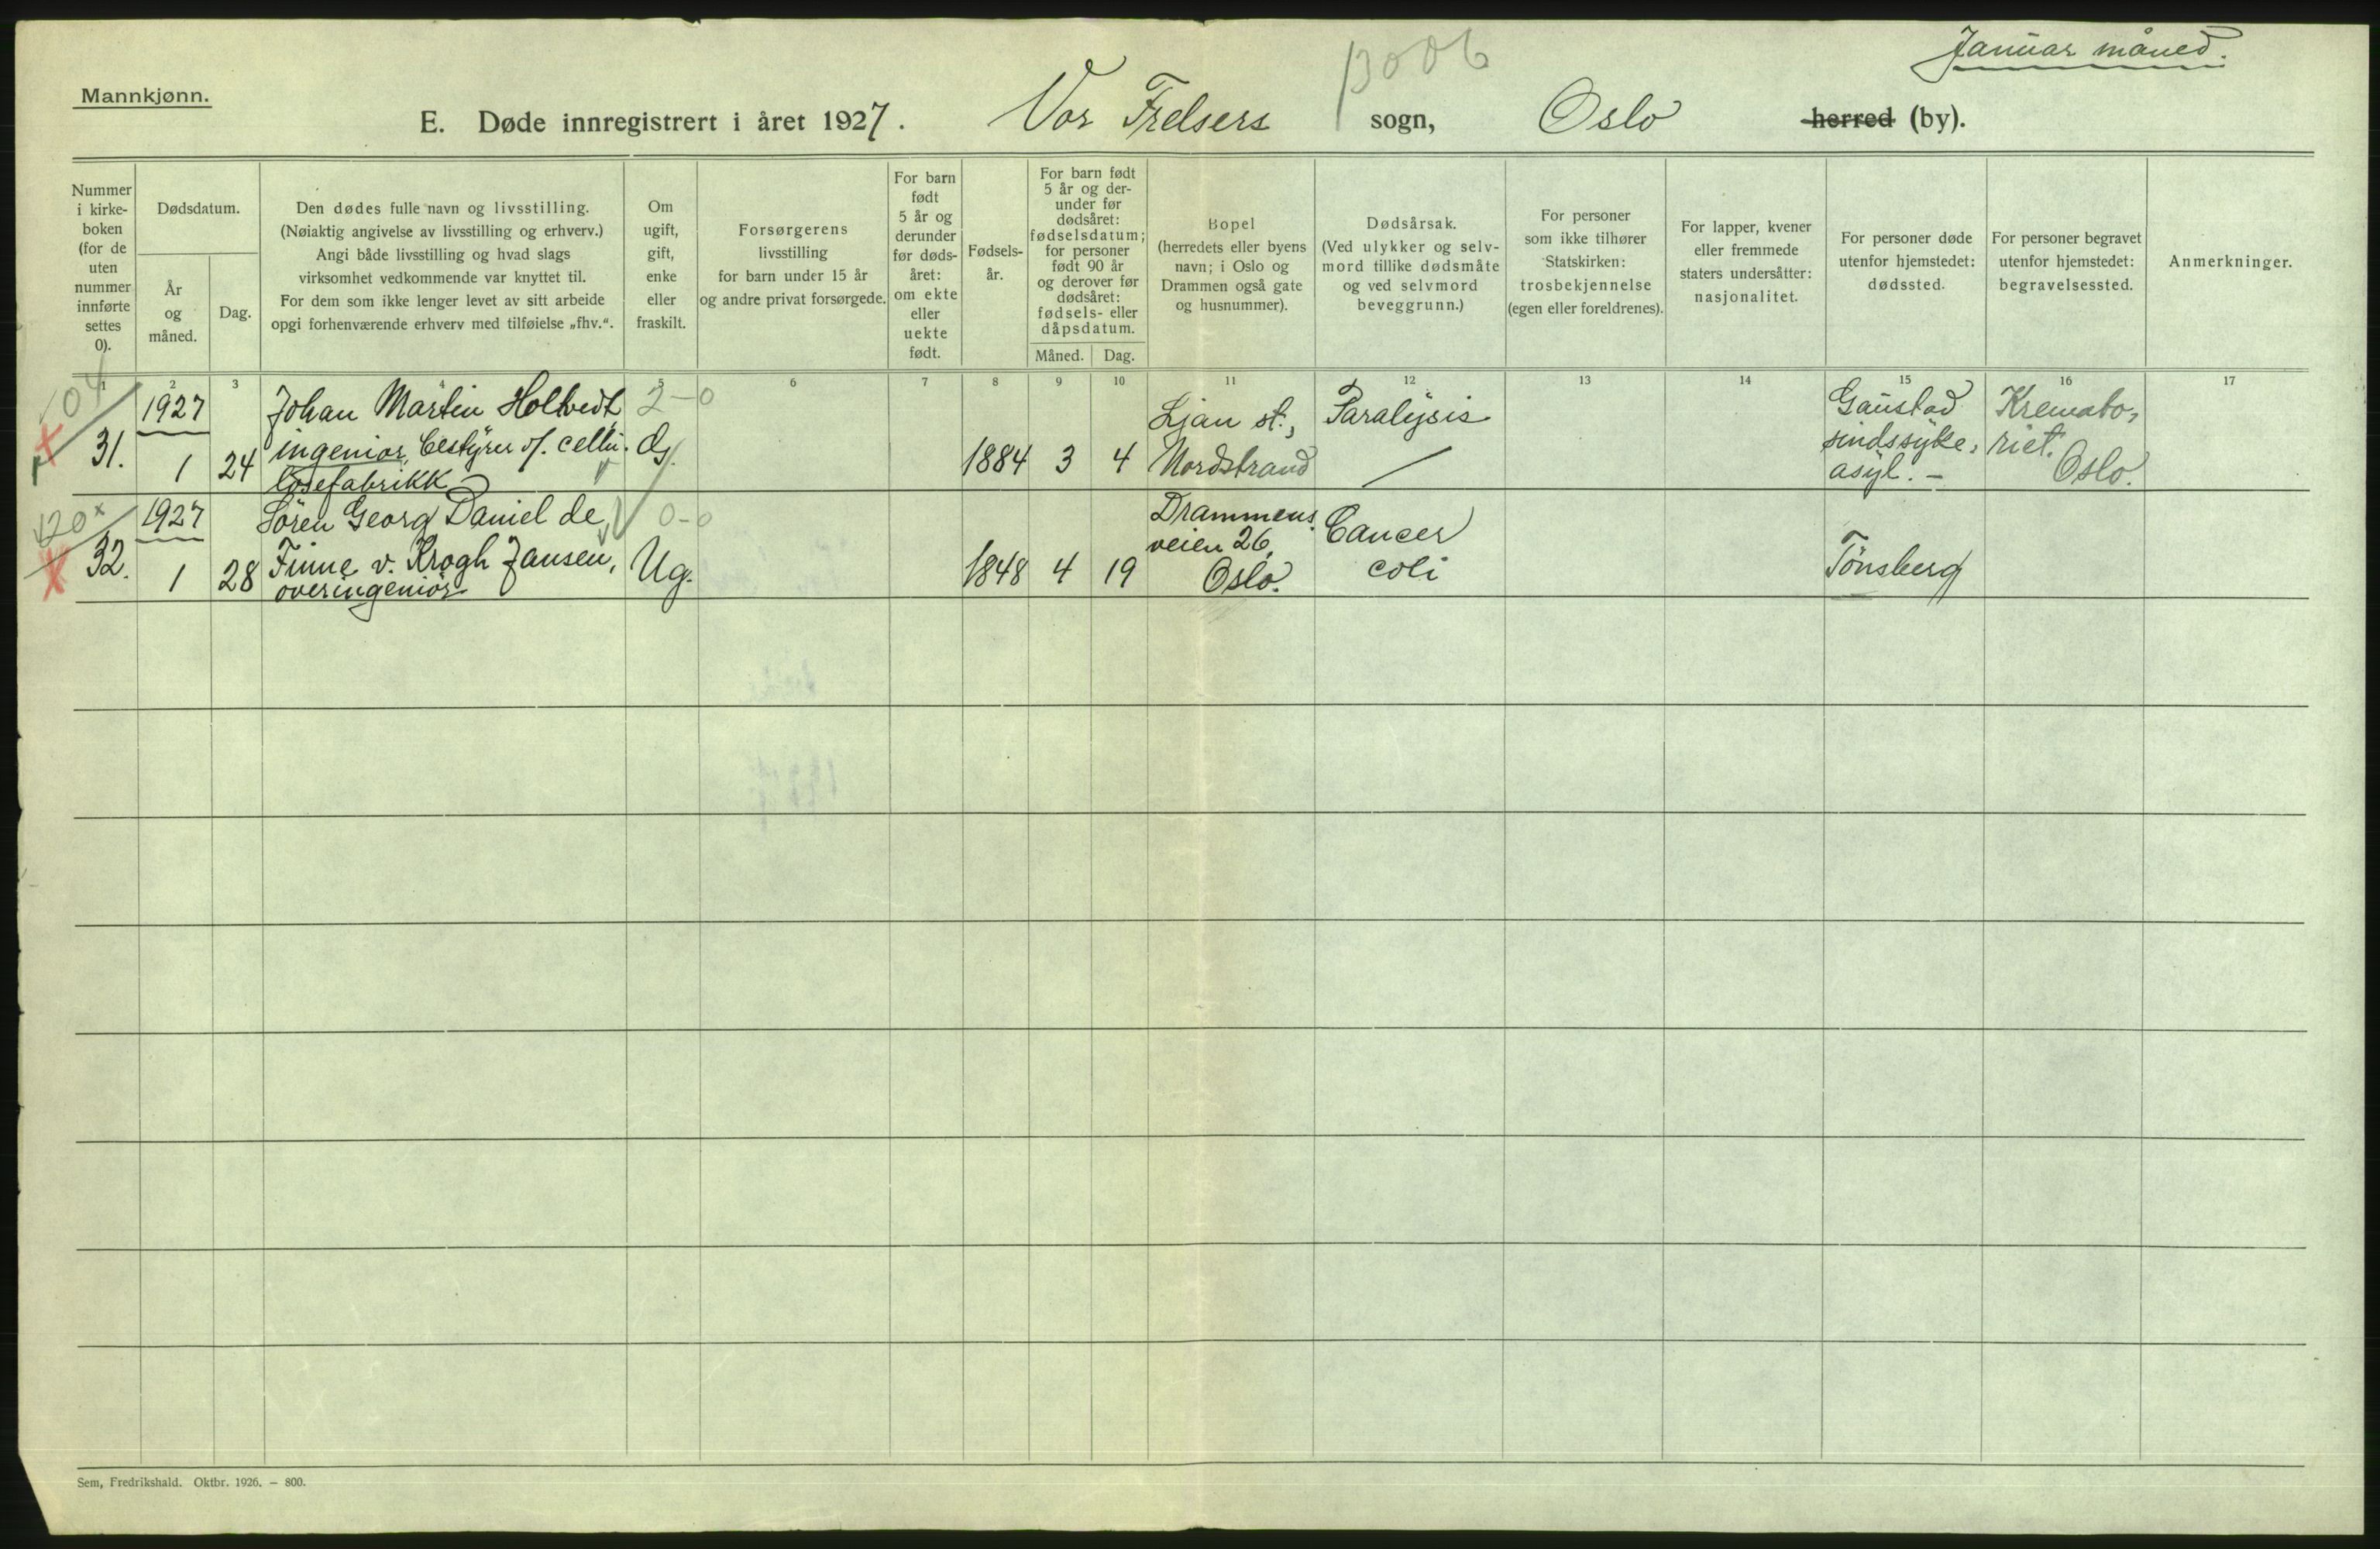 Januar måned.
13006
Mannkjønn.
E. Døde innregistrert i året 1927. Vor Frelsers sogn, Oslo herred (by).
Nummer
i kirke-
boken
(for de
uten
nummer
innførte
settes
0).
Dødsdatum.
År
og
måned.
Dag.
Den dødes fulle navn og livsstilling.
(Nøiaktig angivelse av livsstilling og erhverv.)
Angi både livsstilling og hvad slags
virksomhet vedkommende var knyttet til.
For dem som ikke lenger levet av sitt arbeide
opgi forhenværende erhverv med tilføielse „fhv.“.
Om
ugift,
gift,
enke
eller
fraskilt.
Forsørgerens
livsstilling
for barn under 15 år
og andre privat forsørgede.
For barn
født
5 år og
derunder
før døds-
året:
om ekte
eller
uekte
født.
Fødsels-
år.
For barn født
5 år og der-
under før
dødsåret:
fødselsdatum;
for personer
født 90 år
og derover før
dødsåret:
fødsels- eller
dåpsdatum.
Måned. Dag.
Bopel
(herredets eller byens
navn; i Oslo og
Drammen også gate
og husnummer).
Dødsårsak.
(Ved ulykker og selv-
mord tillike dødsmåte
og ved selvmord
beveggrunn.)
For personer
som ikke tilhører
Statskirken:
trosbekjennelse
(egen eller foreldrenes).
For lapper, kvener
eller fremmede
staters undersåtter:
nasjonalitet.
For personer døde
utenfor hjemstedet:
dødssted.
For personer begravet
utenfor hjemstedet:
begravelsessted.
Anmerkninger.
1 2 3 4 5 6 7 8 9 10 11 12 13 14 15 16 17
104
31.
1927
1
24
Johan Martin Holtvedt,
ingeniør, bestyrer v/. cellu-
losefabrikk
2-0
G.
1884
3
4
Ljan st.,
Nordstrand
Paralysis
Gaustad
sindssyke-
asyl. -
Kremato-
riet.
Oslo.
120 x
32.
1927
1
28
Sören Georg Daniel de
Finne v. Krogh Jansen,
overingeniør
0-0
Ug.
1848
4
19
Drammens-
veien 26,
Oslo.
Cancer
coli
Tönsberg
Sem, Fredrikshald. Oktbr. 1926. — 800.